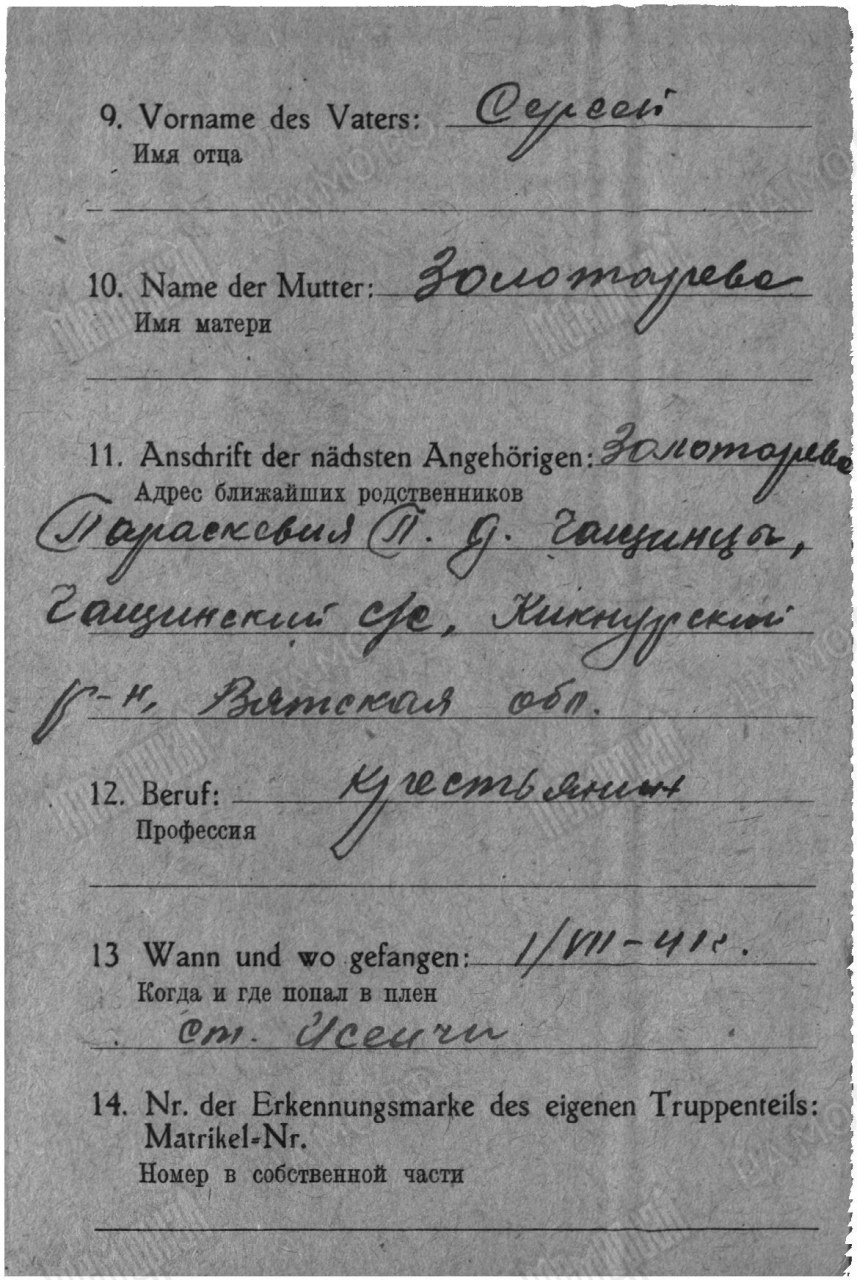 9. Vorname des Vaters: Сергей
Имя отца
10. Name der Mutter: Золотарева
Имя матери
11. Anschrift der nächsten Angehörigen: Золотарева
Адрес ближайших родственников
Параскевия П. д. Чащинцы,
Чащинский с/с, Кикнурский
р-н, Вятская обл.
12. Beruf: крестьянин
Профессия
13 Wann und wo gefangen: 1/VII-41г.
Когда и где попал в плен
ст.
14. Nr. der Erkennungsmarke des eigenen Truppenteils:
Matrikel-Nr.
Номер в собственной части